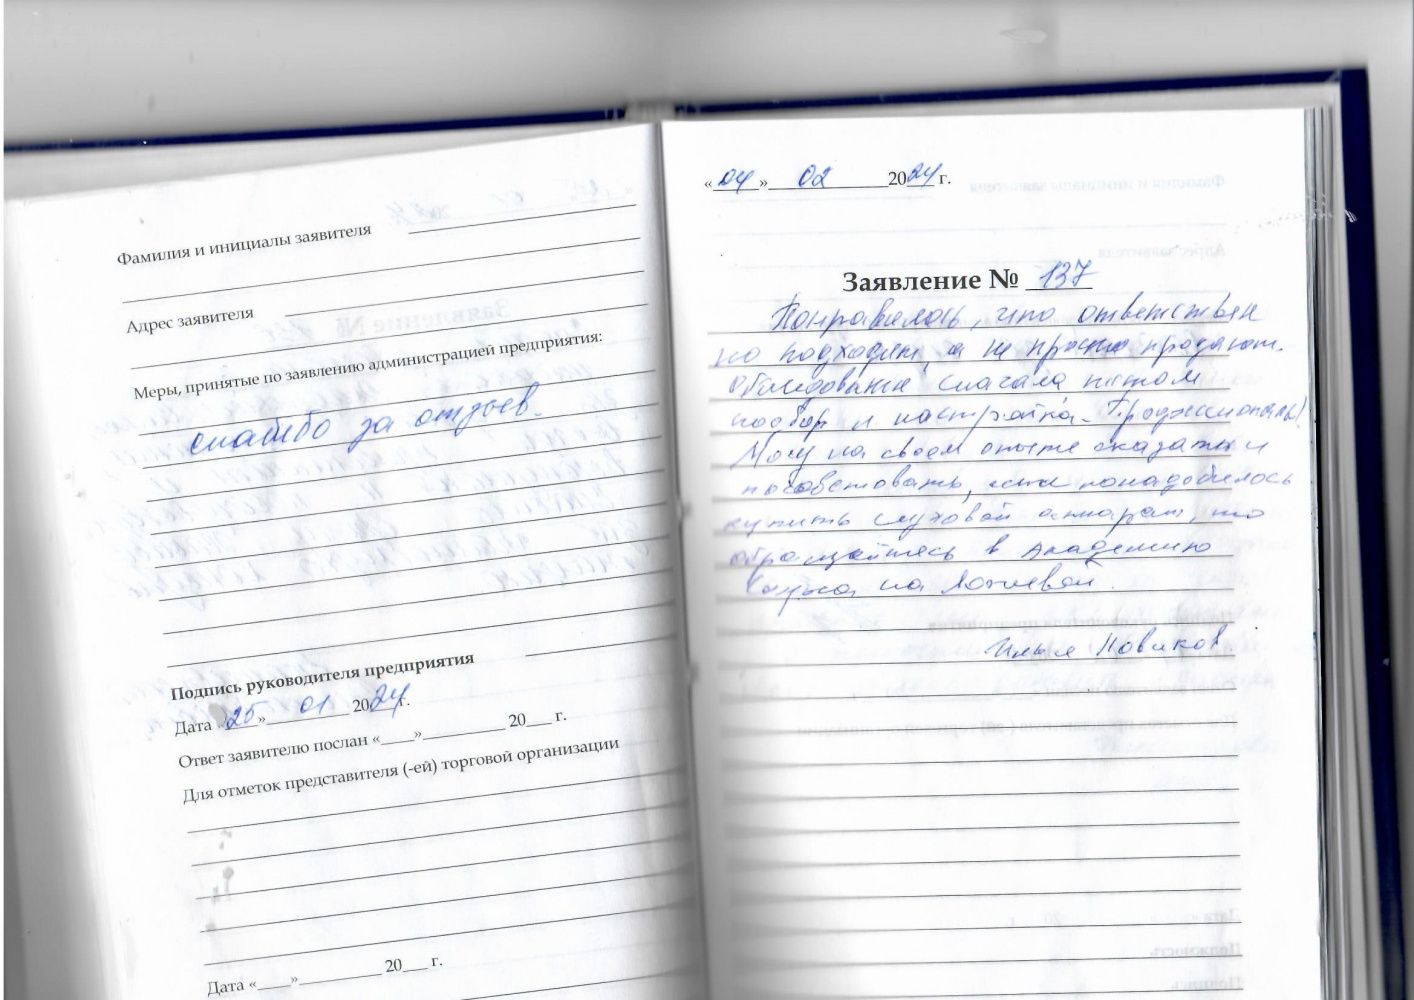 Фамилия и инициалы заявителя
Адрес заявителя
Меры, принятые по заявлению администрацией предприятия:
спасибо за отзыв.
Подпись руководителя предприятия
Дата «25» 01 2024 г.
Ответ заявителю послан «____»__________ 20___ г.
Для отметок представителя (-ей) торговой организации
Дата «____»__________ 20___ г.
«04» 02 2024 г.
Заявление № 137
Понравилось, что ответствен
но подходят, а не просто продают.
Обследование сначала потом
подбор и настройка.
Могу на своем опыте сказать и
посоветовать, если понадобилось
купить слуховой аппарат, то
обращайтесь в Академию
слуха на
Илья Новиков